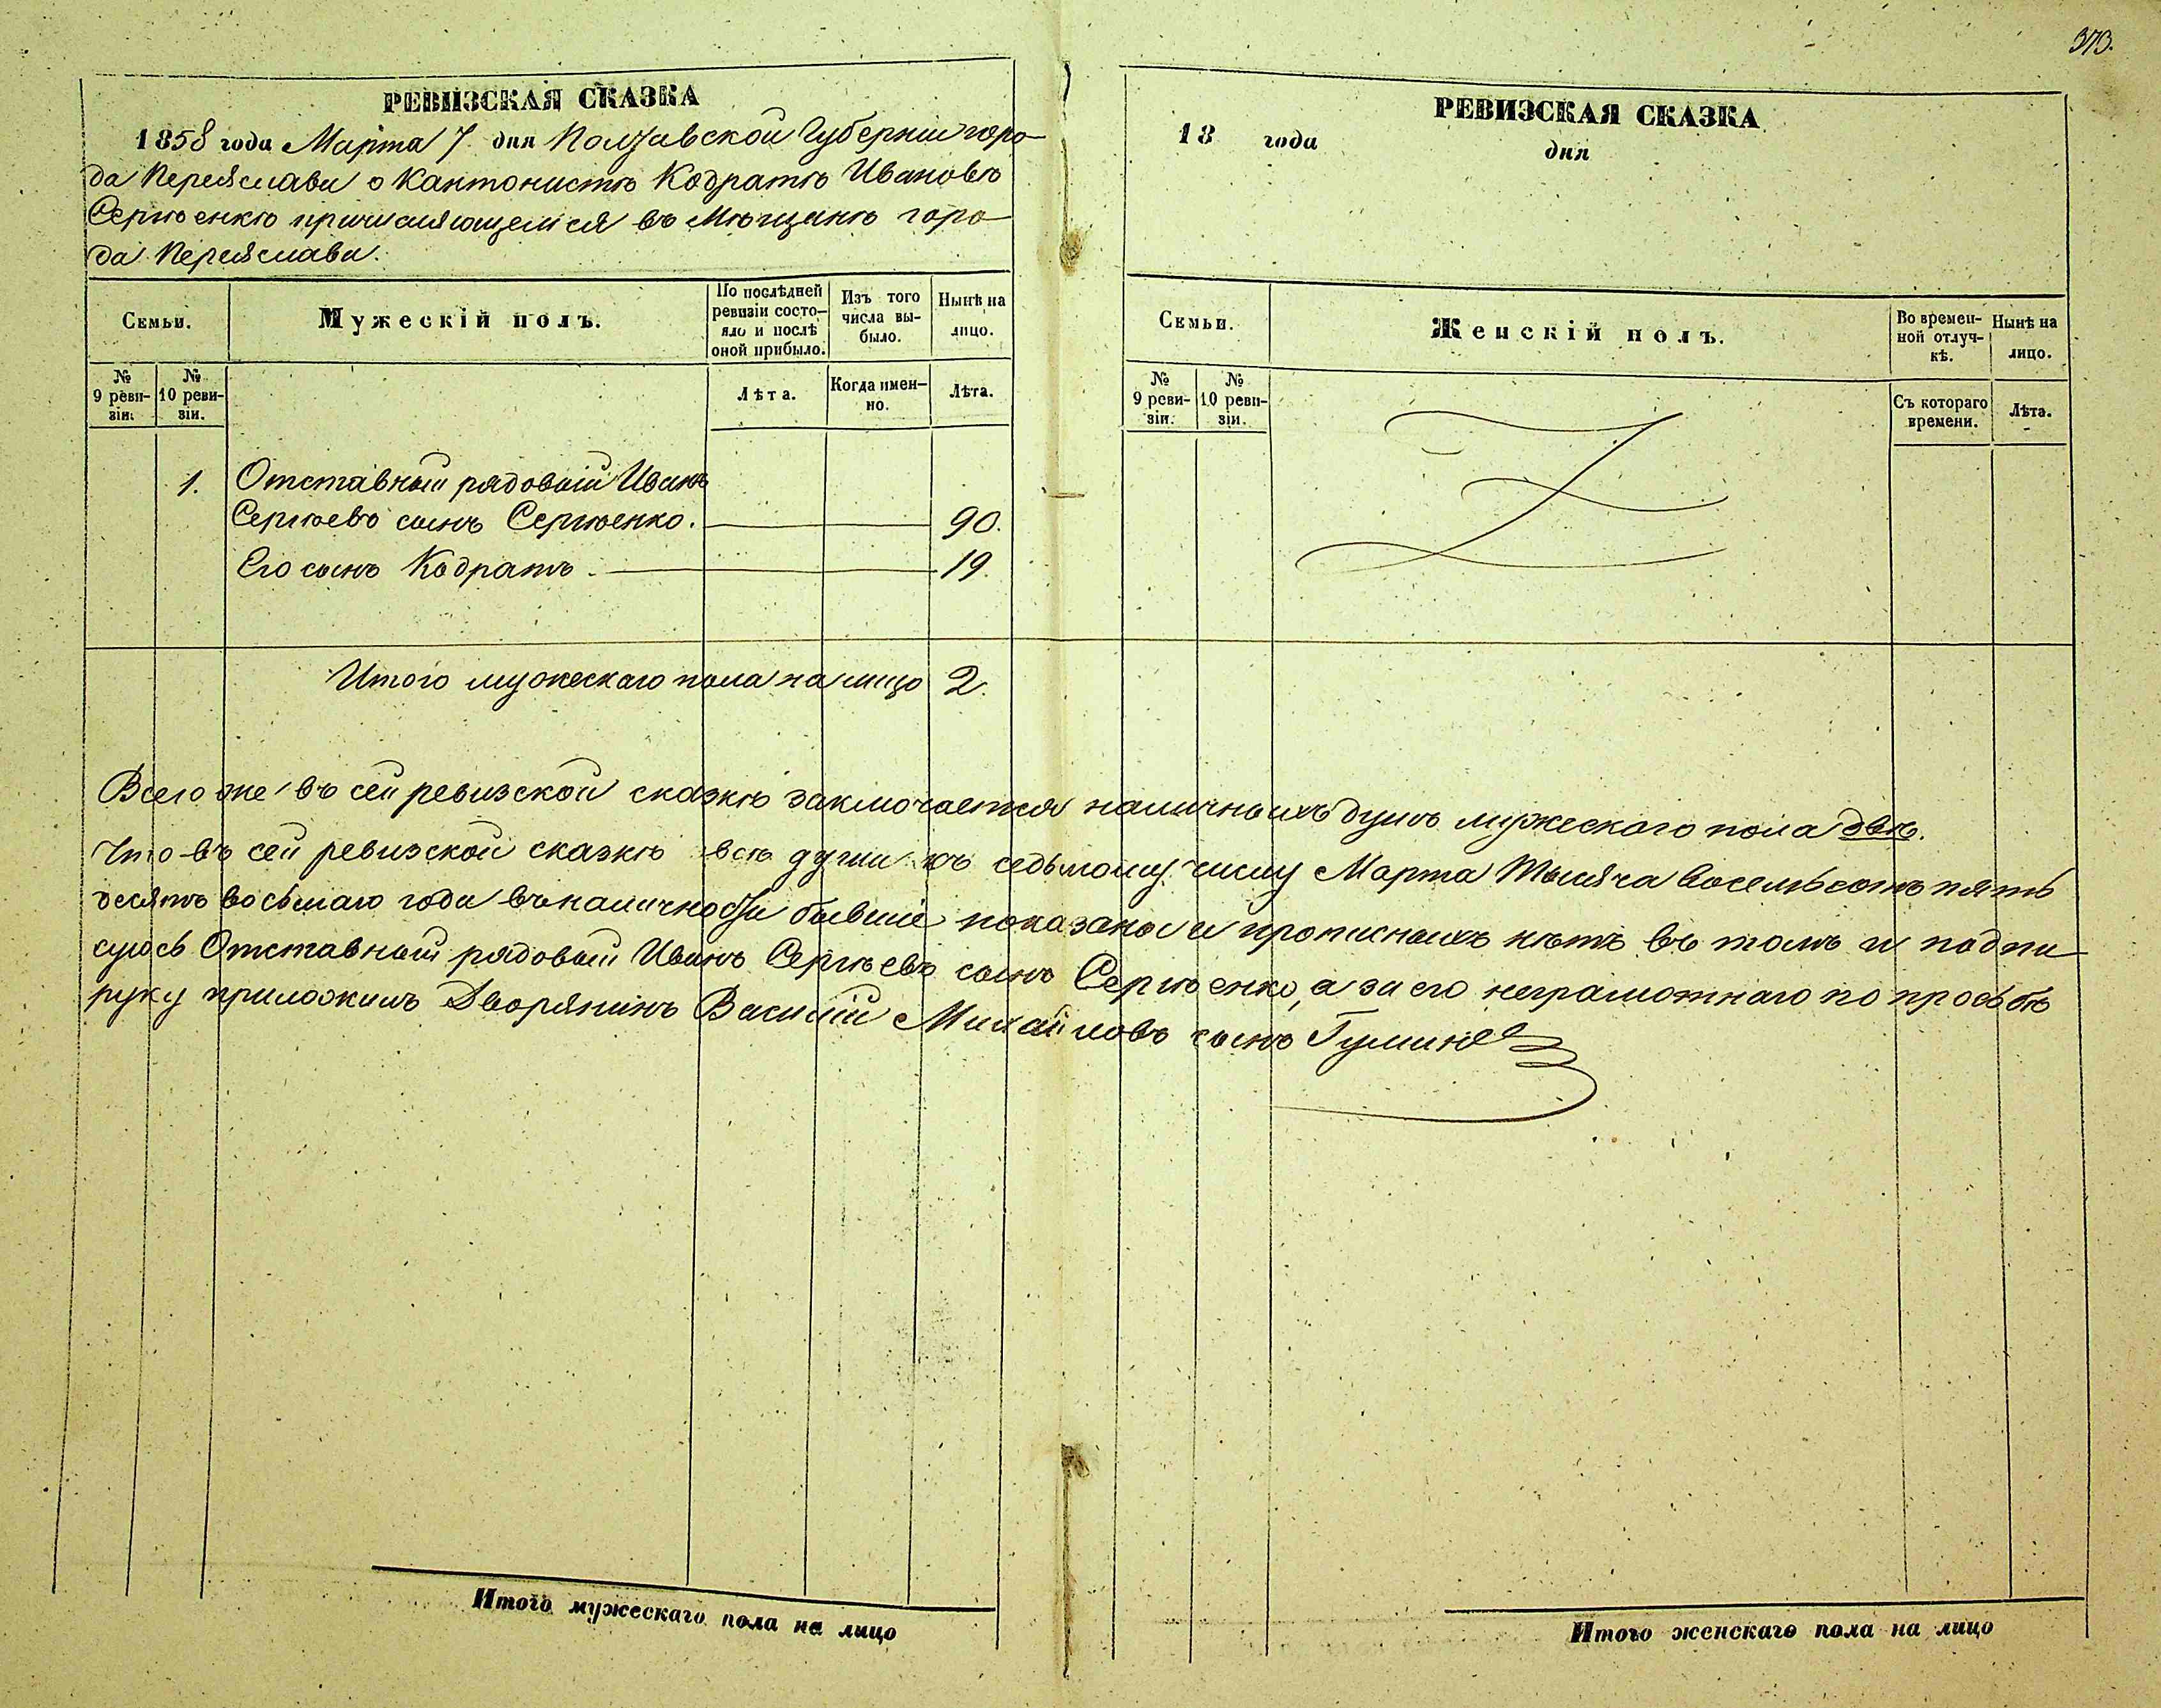 373.
РЕВИЗСКАЯ СКАЗКА
1858 года Марта 7 дня Полтавской Губерніи горо-
да Переяслава о Кантонистѣ Кодратѣ Ивановѣ
Сергѣенкѣ причисляющемся въ Мѣщане горо-
да Переяслава.
Семьи.
Мужескій полъ.
По послѣдней ревизіи состо-яло и послѣ оной прибыло.
Изъ того числа вы-было.
Нынѣ на лицо.
№ 9 реви-зіи.
№ 10 реви-зіи.
Лѣта.
Когда имен-но.
Лѣта.
1. Отставный рядовый Иванъ
Сергѣевъ сынъ Сергѣенко. 90.
Его сынъ Кодратъ. 19.
Итого мужескаго пола на лицо 2.
РЕВИЗСКАЯ СКАЗКА
18 года дня
Семьи.
Женскій полъ.
Во времен-ной отлуч-кѣ.
Нынѣ на лицо.
№ 9 реви-зіи.
№ 10 реви-зіи.
Съ котораго времени.
Лѣта.
Всего же въ сей ревизской сказкѣ заключается наличныхъ душъ мужескаго пола двѣ.
Что въ сей ревизской сказкѣ всѣ души къ седьмому числу Марта Тысяча восемьсотъ пять
десятъ восьмаго года въ наличности бывшіе показаны и прописныхъ нѣтъ въ томъ и подпи
суюсь Отставный рядовый Иванъ Сергѣевъ сынъ Сергѣенко, а за его неграмотнаго по прозьбѣ
руку приложилъ Дворянинъ Василій Михайловъ сынъ
Итого мужескаго пола на лицо
Итого женскаго пола на лицо